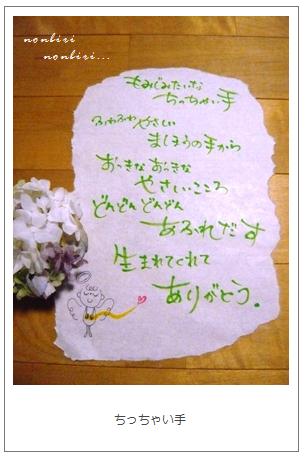 nonbiri
nonbiri...
もみじみたいな
ちっちゃい手
ふわふわ やさしい
まほうの手から
おっきな おっきな
やさしいこころ
どんどん どんどん
あふれだす
生まれてくれて
ありがとう。
ちっちゃい手